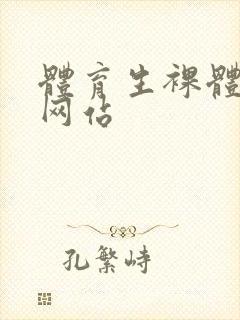 體育生裸體
网站
孔繁峙